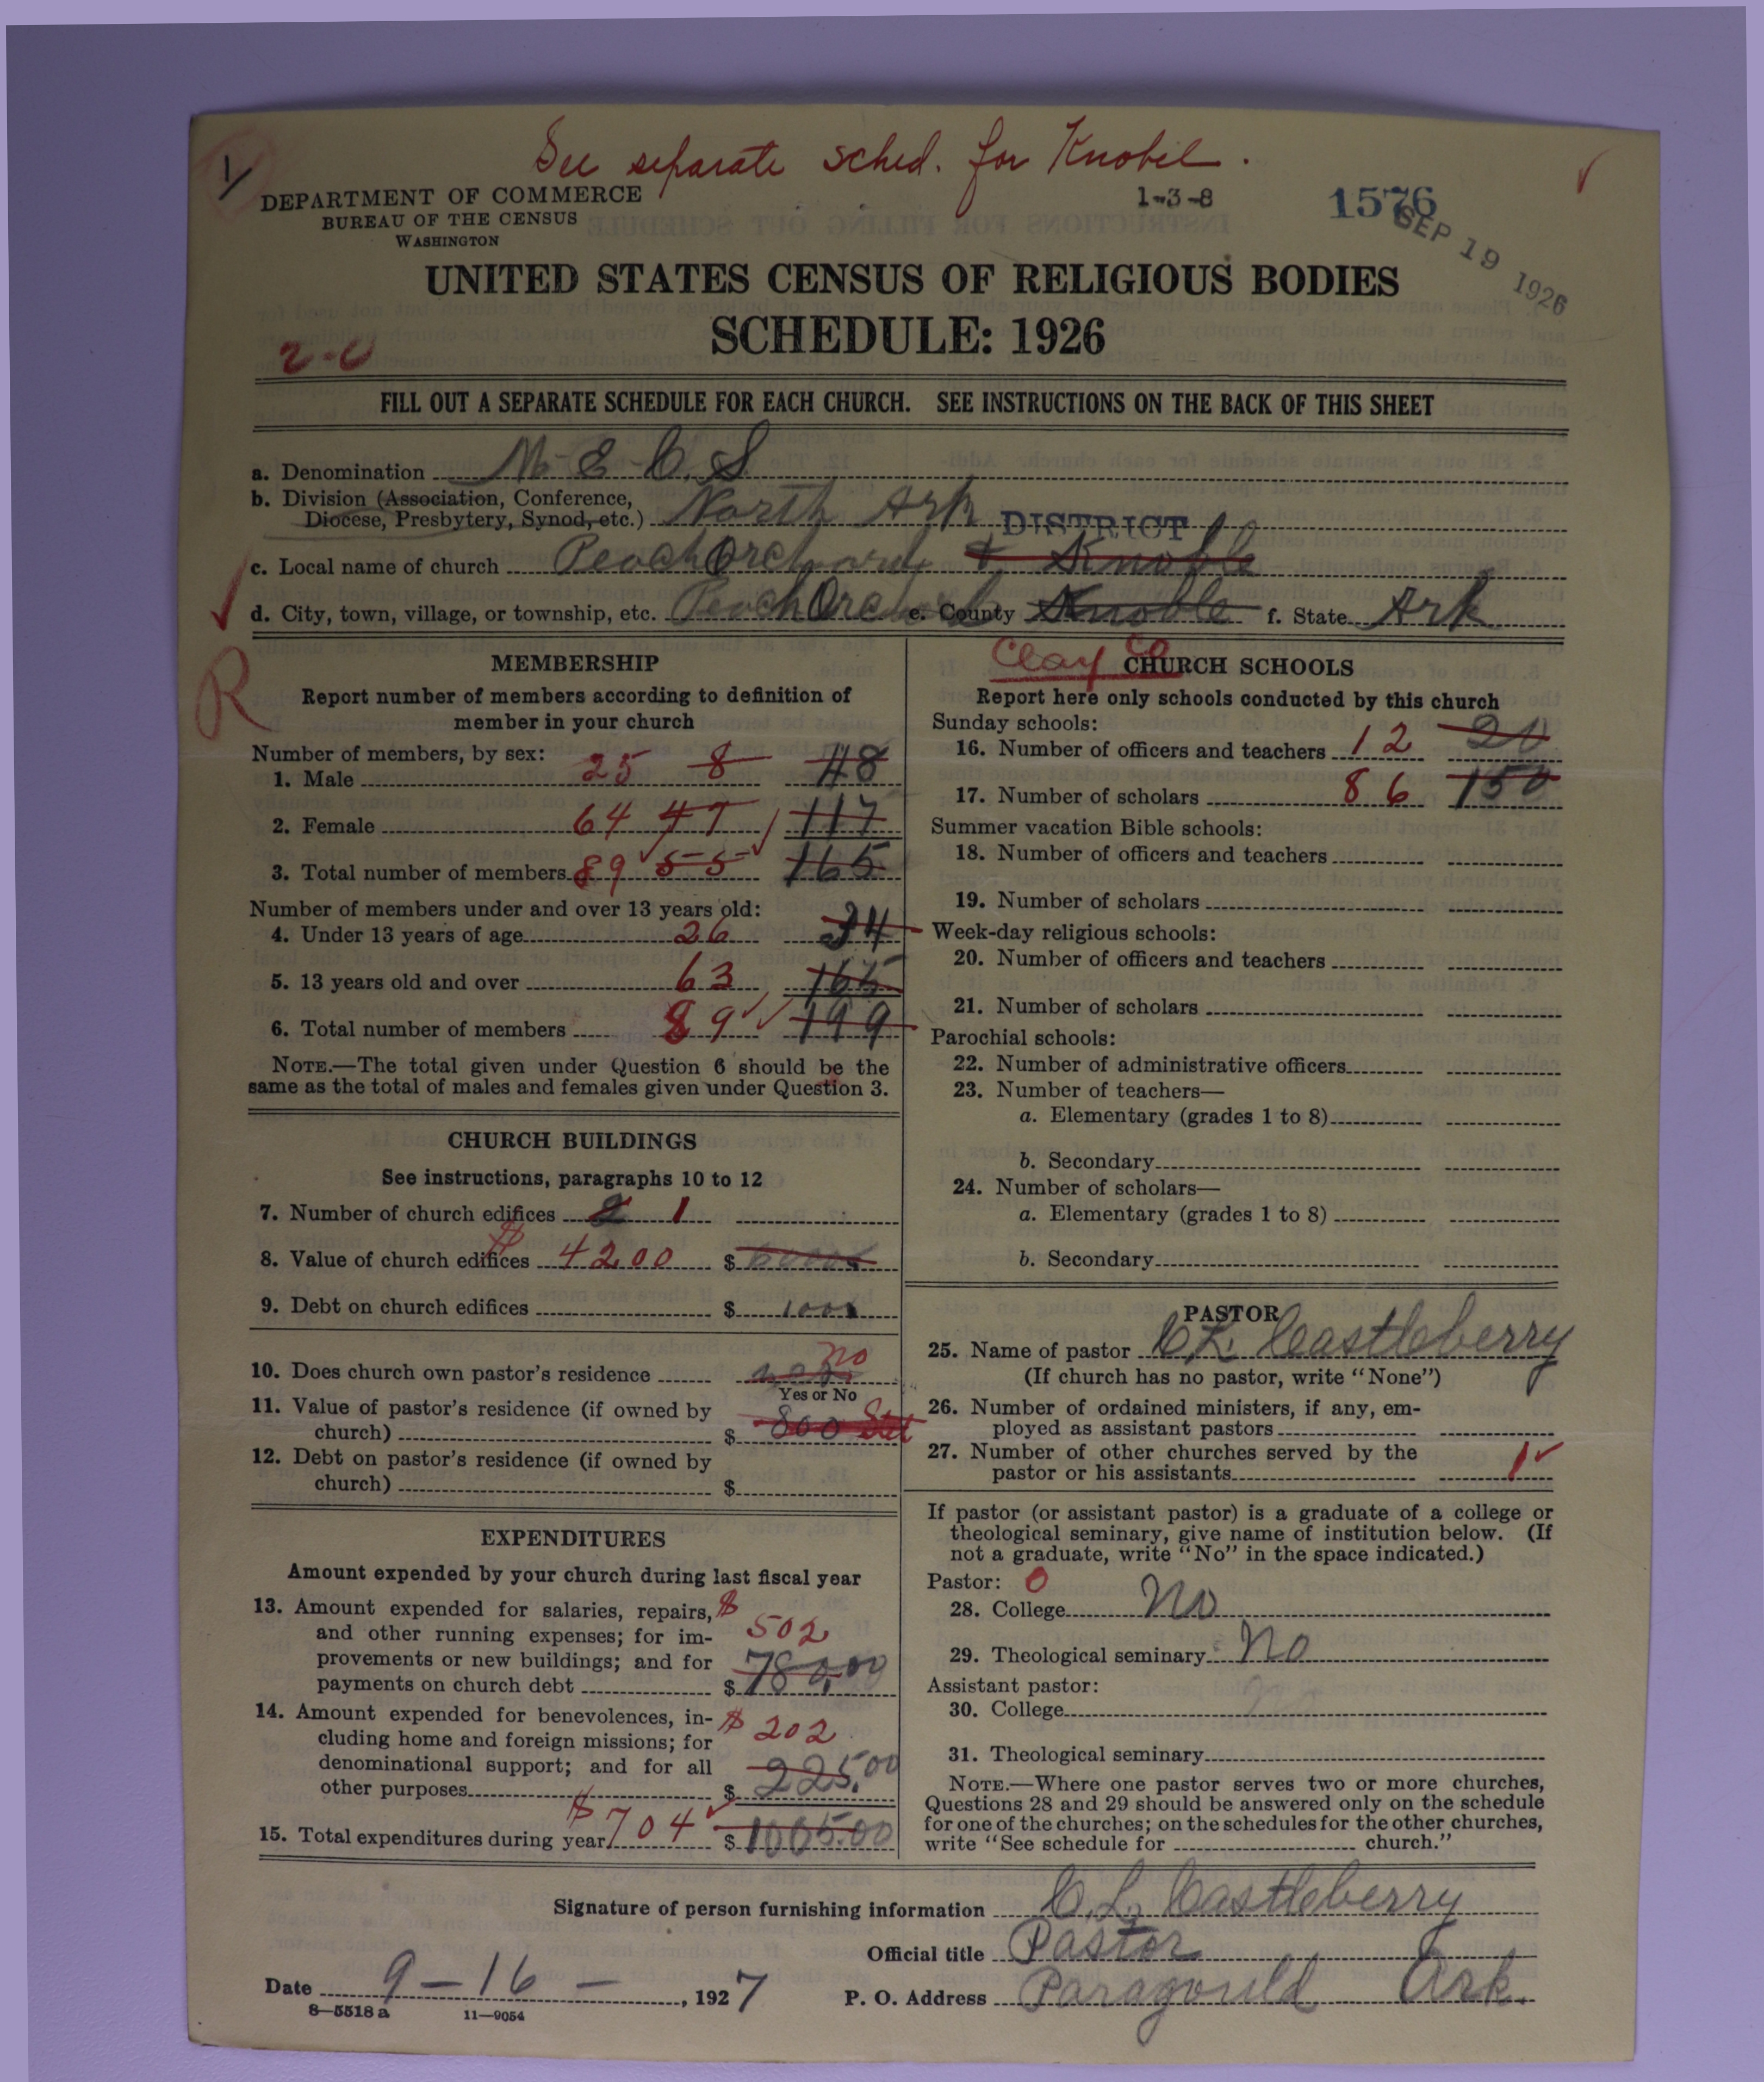 See separate sched. for Knobel.
1
DEPARTMENT OF COMMERCE
BUREAU OF THE CENSUS
WASHINGTON
1-3-8
1576
SEP 19 1926
UNITED STATES CENSUS OF RELIGIOUS BODIES
SCHEDULE: 1926
2-0
FILL OUT A SEPARATE SCHEDULE FOR EACH CHURCH. SEE INSTRUCTIONS ON THE BACK OF THIS SHEET
a. Denomination M. E. C. S.
b. Division (Association, Conference,
Diocese, Presbytery, Synod, etc.) North Ark DISTRICT
c. Local name of church Peach Orchard & Knoble
d. City, town, village, or township, etc. Peach Orchard e. County Knoble f. State Ark
Clay Co
R
MEMBERSHIP
Report number of members according to definition of
member in your church
Number of members, by sex:
1. Male 25 8 48
2. Female 64 47 117
3. Total number of members 89 55 165
Number of members under and over 13 years old:
4. Under 13 years of age 26 34
5. 13 years old and over 63 165
6. Total number of members 89 199
NOTE.—The total given under Question 6 should be the
same as the total of males and females given under Question 3.
CHURCH BUILDINGS
See instructions, paragraphs 10 to 12
7. Number of church edifices 2 1
8. Value of church edifices $ 4200 $
9. Debt on church edifices $
10. Does church own pastor's residence no
Yes or No
11. Value of pastor's residence (if owned by
church) $ 800 Stet
12. Debt on pastor's residence (if owned by
church) $
EXPENDITURES
Amount expended by your church during last fiscal year
13. Amount expended for salaries, repairs, $
and other running expenses; for im- 502
provements or new buildings; and for
payments on church debt $ 780.00
14. Amount expended for benevolences, in- $ 202
cluding home and foreign missions; for
denominational support; and for all
other purposes $ 225.00
15. Total expenditures during year $704 $ 1005.00
CHURCH SCHOOLS
Report here only schools conducted by this church
Sunday schools:
16. Number of officers and teachers 12 20
17. Number of scholars 86 150
Summer vacation Bible schools:
18. Number of officers and teachers
19. Number of scholars
Week-day religious schools:
20. Number of officers and teachers
21. Number of scholars
Parochial schools:
22. Number of administrative officers
23. Number of teachers—
a. Elementary (grades 1 to 8)
b. Secondary
24. Number of scholars—
a. Elementary (grades 1 to 8)
b. Secondary
PASTOR
25. Name of pastor C. L. Castleberry
(If church has no pastor, write "None")
26. Number of ordained ministers, if any, em-
ployed as assistant pastors
27. Number of other churches served by the
pastor or his assistants 1
If pastor (or assistant pastor) is a graduate of a college or
theological seminary, give name of institution below. (If
not a graduate, write "No" in the space indicated.)
Pastor: 0
28. College No
29. Theological seminary No
Assistant pastor:
30. College
31. Theological seminary
NOTE.—Where one pastor serves two or more churches,
Questions 28 and 29 should be answered only on the schedule
for one of the churches; on the schedules for the other churches,
write "See schedule for church."
Signature of person furnishing information C. L. Castleberry
Official title Pastor
Date 9-16-, 1927 P. O. Address Paragould Ark.
8-5518 a 11-9054